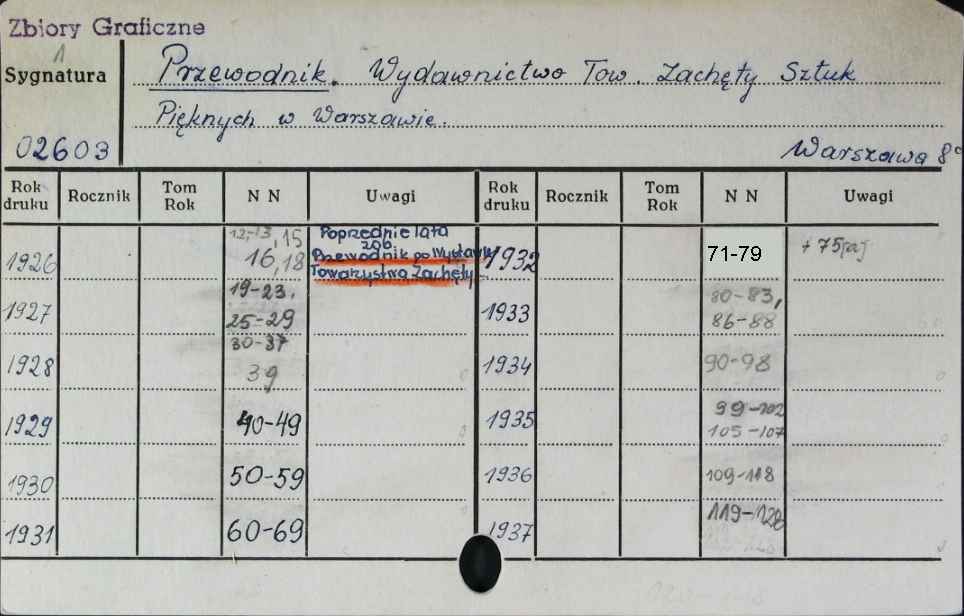 Zbiory Graficzne
1
Sygnatura
02603
Przewodnik. Wydawnictwo Tow. Zachęty Sztuk
Pięknych w Warszawie.
Warszawa 8°
Rok druku Rocznik Tom Rok N N Uwagi Rok druku Rocznik Tom Rok N N Uwagi
1926 12,-13,15
16,18
Poprzednie lata
zob.
Przewodnik po Wystawie
Towarzystwa Zachęty
1927 19-23,
25-29
1928 30-37
39
1929 40-49
1930 50-59
1931 60-69
1932 71-79 +75
1933 80-83,
86-88
1934 90-98
1935 99-102
105-107
1936 109-118
1937 119-128